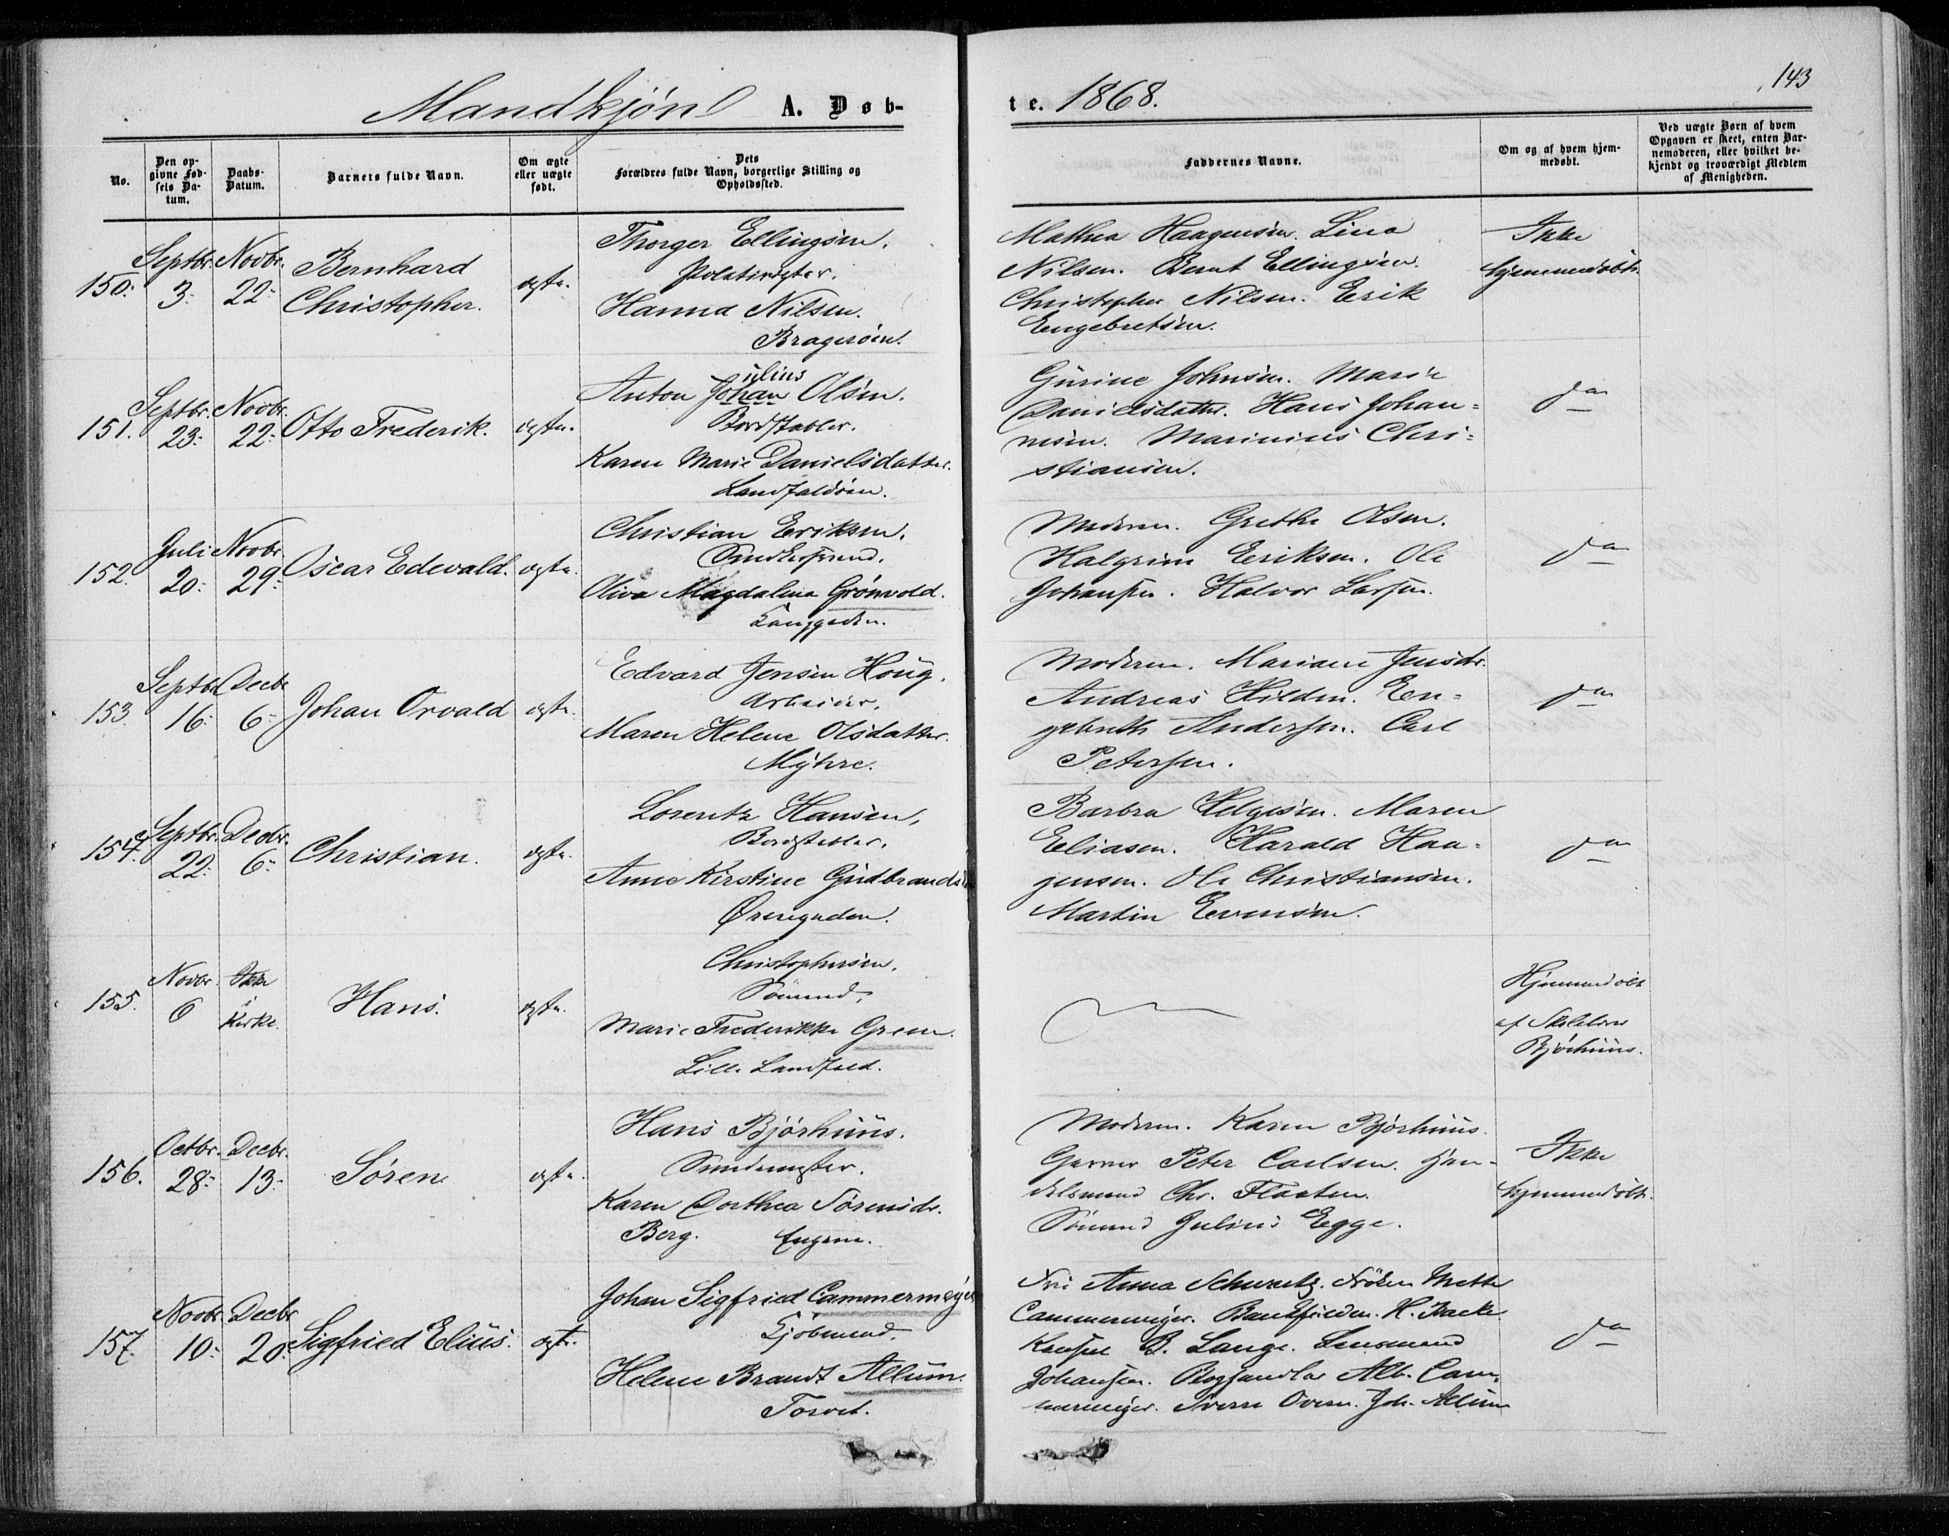 143
Mandkjøn A. Døb-
te. 1868.
No.
Den op-
givne Fød-
sels Da-
tum.
Daabs-
Datum.
Barnets fulde Navn.
Om ægte
eller uægte
født.
Dets
Forældres fulde Navn, borgerlige Stilling og
Opholdssted.
Faddernes Navne.
Om og af hvem hjem-
medøbt.
Ved uægte Børn af hvem
Opgaven er skeet, enten Bar-
nemoderen, eller hvilket be-
kjendt og troværdigt Medlem
af Menigheden.
150.
Septbr.
3.
Novbr.
22.
Bernhard
Christopher.
ægte.
Thorger Ellingsen.
Hanna Nilsen.
Bragerøen.
Mathea Haagensen. Lina
Nilsen. Bernt Ellingsen.
Christopher Nilsen. Erik
Engebretsen.
Ikke
hjemmedøbt.
151.
Septbr.
23.
Novbr.
22.
Otto Frederik.
ægte.
ulius
Anton Johan Olsen.
Bordstabler.
Karen Marie Danielsdatter.
Landfaldøen.
Gurine Johnsen. Marie
Danielsdatter. Hans Johan-
nesen. Marinius Chri-
stiansen.
do
152.
Juli
20.
Novbr.
29.
Oscar Edevald.
ægte.
Christian Eriksen.
Smedesvend.
Oliva Magdalena Grønvold.
Langgaden.
Moderen. Grethe Olsen.
Halgrim Eriksen. Ole
Johansen. Halvor Larsen.
do
153.
Septbr.
16.
Decbr.
6.
Johan Orvald
ægte.
Edvard Jensen Houg.
Arbeider.
Maren Helene Olsdatter.
Myhre.
Moderen. Mariane Jensdr.
Andreas Hilden. En-
gebreth Andersen. Carl
Petersen.
do
154.
Septbr.
22.
Decbr.
6.
Christian.
ægte.
Lorentz Hansen,
Bordstabler.
Anne Kirstine Gudbrandsd
Øvregaden.
Barbra Helgesen. Maren
Eliasen. Harald Haa-
gensen. Ole Christiansen.
Martin Evensen.
do
155.
Novbr.
6
Ikke
i
Kirke.
Hans.
ægte.
Christophersen.
Sømand.
Marie Frederikke Green.
Lille Landfald.
Hjemmedøbt
af
Bjørhuus.
156.
Octbr.
28.
Decbr.
13.
Søren
ægte.
Hans Bjørhuus.
Karen Dorthea Sørensdr.
Berg. Engene.
Moderen. Karen Bjørhuus.
Garver Peter Carlsen. Han-
delsmand Chr. Flaaten.
Sømand Julius Egge.
Ikke
hjemmedøbt.
157.
Novbr.
10.
Decbr.
20.
Sigfried Elius.
ægte.
Johan Sigfried Cammermeyer
Kjøbmand.
Helene Brandt Allum.
Torvet.
Fru Anna Schwartz. Frøken Mette
Cammermeyer. H. Backe
Konsul B. Lange. Lensmand
Johansen. Boghandler Alb. Cam-
mermeyer. Sverre Overn. Joh. Allum
do